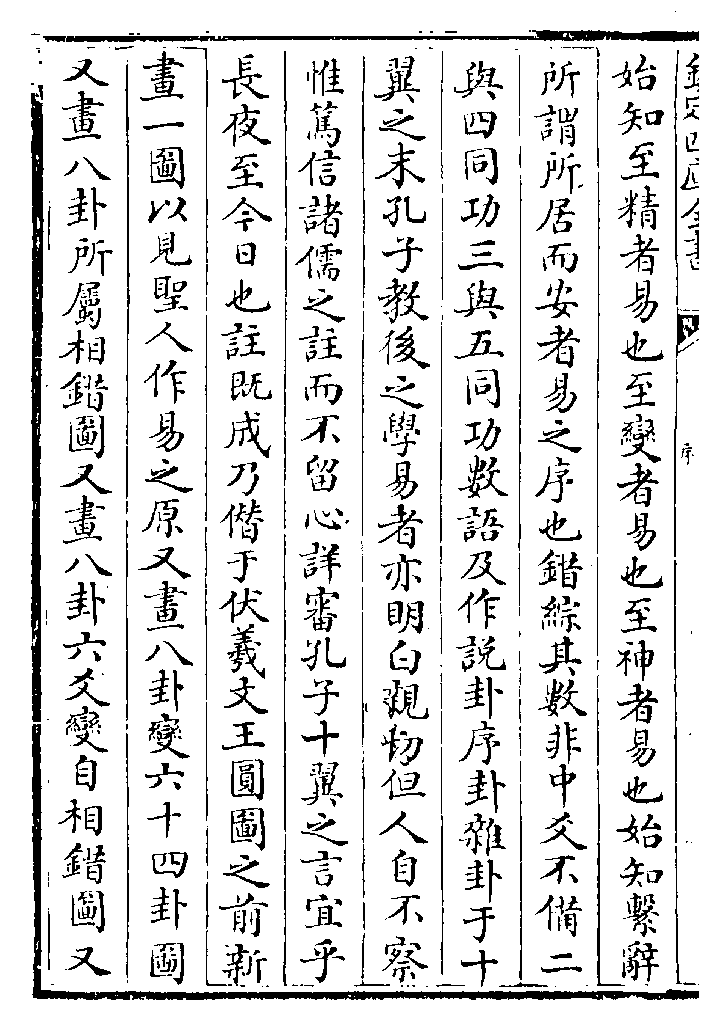 欽定四庫全書
序
始知至精者易也至變者易也至神者易也始知繫辭
所謂所居而安者易之序也錯綜其數非中爻不備二
與四同功三與五同功數語及作說卦序卦雜卦于十
翼之末孔子教後之學易者亦明白親切但人自不察
惟篤信諸儒之註而不留心詳審孔子十翼之言宜乎
長夜至今日也註既成乃僭于伏羲文王圓圖之前新
畫一圖以見聖人作易之原又畫八卦變六十四卦圖
又畫八卦所屬相錯圖又畫八卦六爻變自相錯圖又